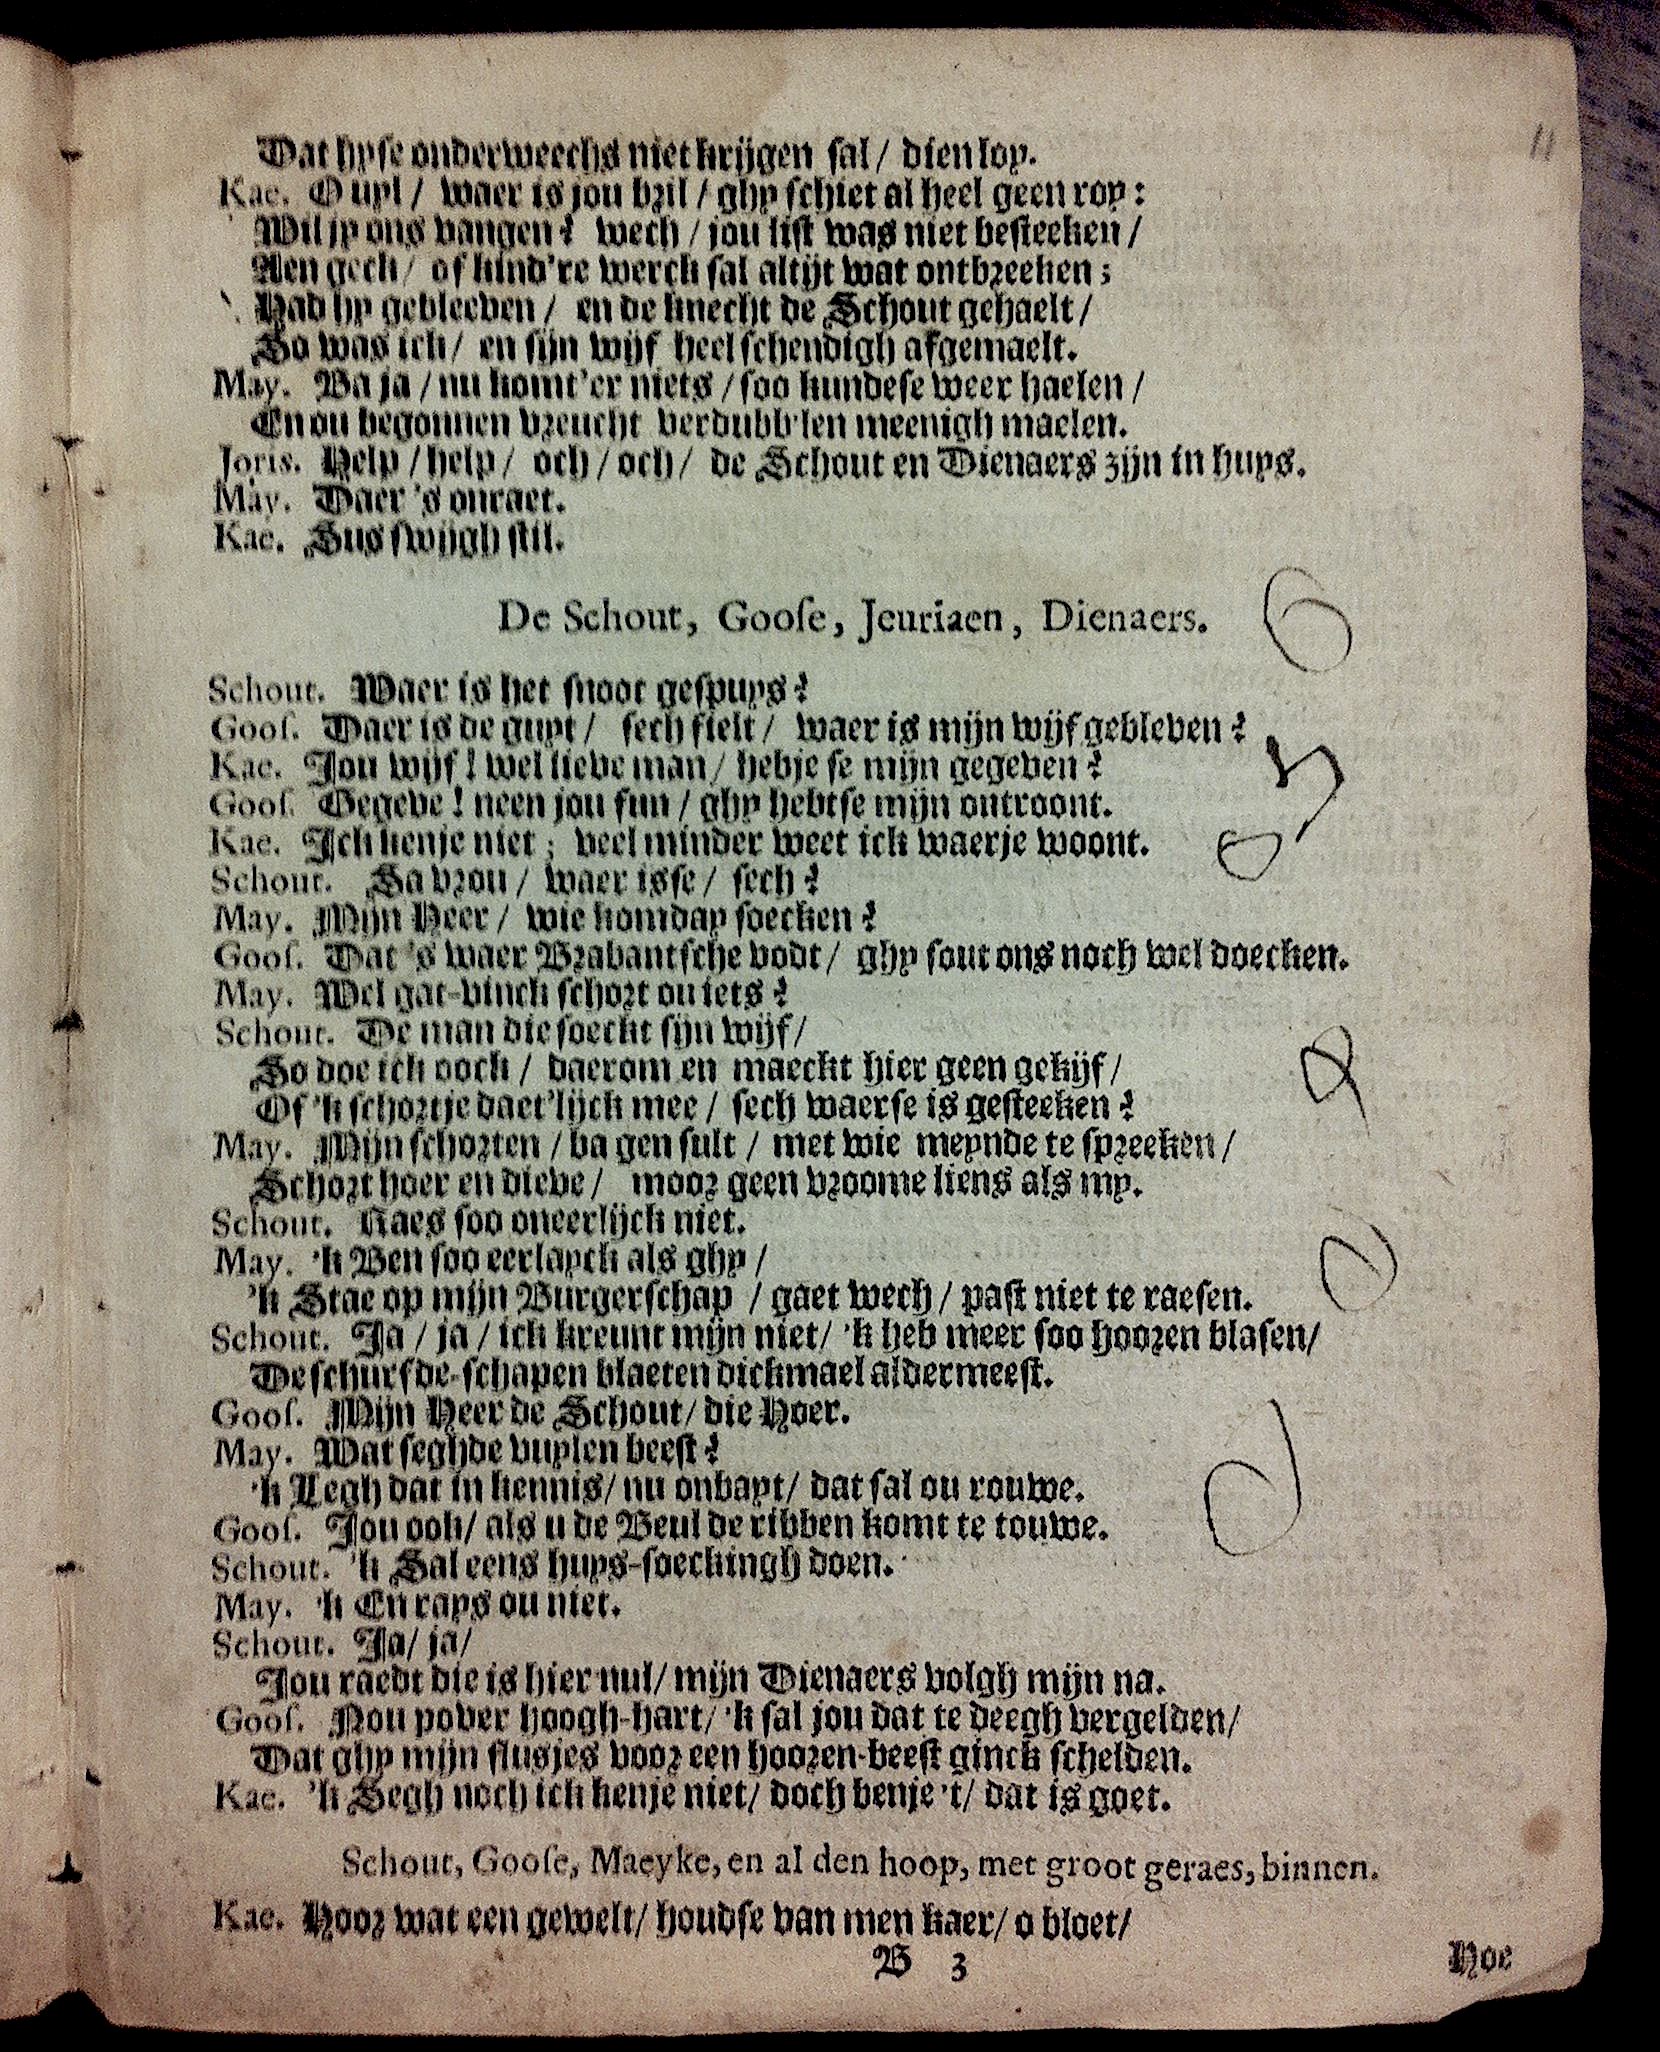 11
Dat hyse onderweechs niet krijgen sal / dien loy.
Kae. O uyl / waer is jou bril / ghy schiet al heel geen roy:
Wil jy ons vangen? wech / jou list was niet besteeken /
Aen geck / of kind're werck sal altijt wat ontbreeken;
Had hy gebleeven / en de knecht de Schout gehaelt /
So was ick / en sijn wijf heel schendigh afgemaelt.
May. Ba ja / nu komt'er niets / soo kundese weer haelen /
En ou begonnen vreucht verdubb'len meenigh maelen.
Joris. Help / help / och / och / de Schout en Dienaers zijn in huys.
May. Daer 's onraet.
Kae. Sus swijgh stil.
De Schout, Goose, Jeuriaen, Dienaers.
Schout. Waer is het snoot gespuys?
Goos. Daer is de guyt / sech fielt / waer is mijn wijf gebleven?
Kae. Jou wijf! wel lieve man / hebje se mijn gegeven?
Goos. Gegeve! neen jou fun / ghy hebtse mijn ontroont.
Kae. Ick kenje niet; veel minder weet ick waerje woont.
Schout. Sa vrou / waer isse / sech?
May. Mijn Heer / wie komday soecken?
Goos. Dat 's waer Brabantsche vodt / ghy sout ons noch wel doecken.
May. Wel gat-vinck schort ou iets?
Schout. De man die soeckt sijn wijf /
So doe ick ooch / daerom en maeckt hier geen gekijf /
Of 'k schortje daet'lijck mee / sech waerse is gesteeken?
May. Mijn schorten / ba gen sult / met wie meynde te spreeken /
Schort hoer en dieve / moor geen vroome liens als my.
Schout. Raes soo oneerlijck niet.
May. 'k Ben soo eerlayck als ghy /
'k Stae op mijn Burgerschap / gaet wech / past niet te raesen.
Schout. Ja / ja / ick kreunt mijn niet / 'k heb meer soo hooren blasen /
De schurfde-schapen blaeten dickmael aldermeest.
Goos. Mijn Heer de Schout / die Hoer.
May. Wat seghde vuylen beest?
'k Legh dat in kennis / nu onbayt / dat sal ou rouwe.
Goos. Jou ook / als u de Beul de ribben komt te touwe.
Schout. 'k Sal eens huys-soeckingh doen.
May. 'k En rays ou niet.
Schout. Ja / ja /
Jou raedt die is hier nul / mijn Dienaers volgh mijn na.
Goos. Nou pover hoogh-hart / 'k sal jou dat te deegh vergelden /
Dat ghy mijn flusjes voor een hooren-beest ginck schelden.
Kae. 'k Segh noch ick kenje niet / doch benje 't / dat is goet.
Schout, Goose, Maeyke, en al den hoop, met groot geraes, binnen.
Kae. Hoor wat een gewelt / houdse van men kaer / o bloet /
B 3
Hoe